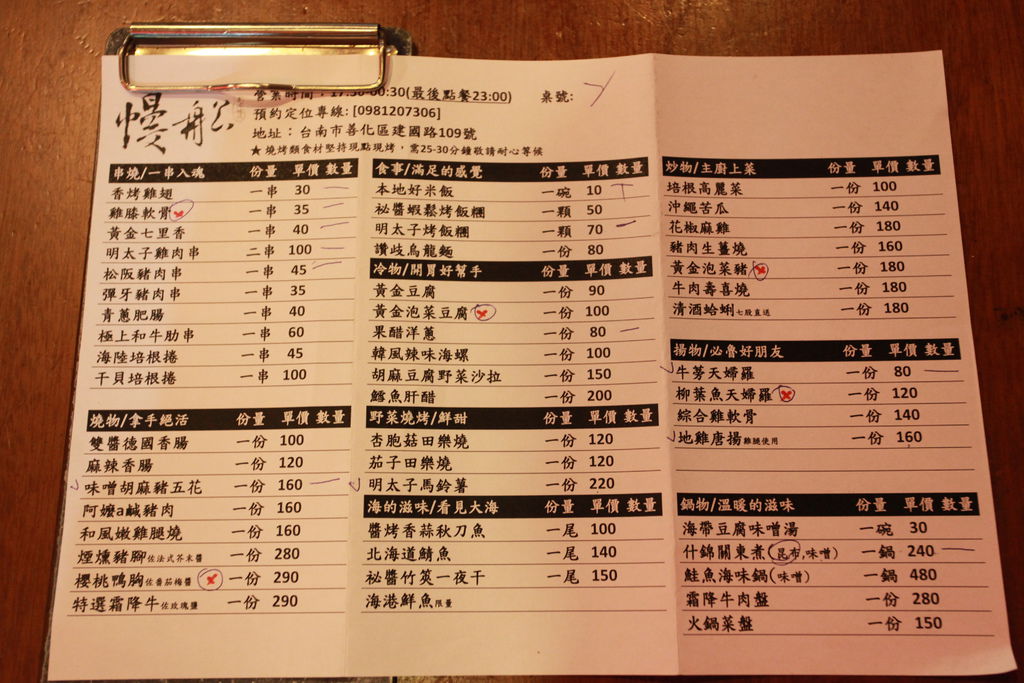 慢船
營業時間：17:30-00:30(最後點餐23:00)
桌號:
預約定位專線: [0981207306]
地址：台南市善化區建國路109號
★燒烤類食材堅持現點現烤，需25-30分鐘敬請耐心等候
串燒/一串入魂 份量 單價 數量
香烤雞翅 一串 30
雞膝軟骨 一串 35
黃金七里香 一串 40
明太子雞肉串 二串 100
松阪豬肉串 一串 45
彈牙豬肉串 一串 35
青蔥肥腸 一串 40
極上和牛肋串 一串 60
海陸培根捲 一串 45
干貝培根捲 一串 100
燒物/拿手絕活 份量 單價 數量
雙醬德國香腸 一份 100
麻辣香腸 一份 120
味噌胡麻豬五花 一份 160
阿嬤a鹹豬肉 一份 160
和風嫩雞腿燒 一份 160
煙燻豬腳佐法式芥末醬 一份 280
櫻桃鴨胸佐番茄梅醬 一份 290
特選霜降牛佐玫瑰鹽 一份 290
食事/滿足的感覺 份量 單價 數量
本地好米飯 一碗 10
祕醬蝦鬆烤飯糰 一顆 50
明太子烤飯糰 一顆 70
讚歧烏龍麵 一份 80
冷物/開胃好幫手 份量 單價 數量
黃金豆腐 一份 90
黃金泡菜豆腐 一份 100
果醋洋蔥 一份 80
韓風辣味海螺 一份 100
胡麻豆腐野菜沙拉 一份 150
鱈魚肝醋 一份 200
野菜燒烤/鮮甜 份量 單價 數量
杏胞菇田樂燒 一份 120
茄子田樂燒 一份 120
明太子馬鈴薯 一份 220
海的滋味/看見大海 份量 單價 數量
醬烤香蒜秋刀魚 一尾 100
北海道鯖魚 一尾 140
祕醬竹筴一夜干 一尾 150
海港鮮魚限量
炒物/主廚上菜 份量 單價 數量
培根高麗菜 一份 100
沖繩苦瓜 一份 140
花椒麻雞 一份 180
豬肉生薑燒 一份 160
黃金泡菜豬 一份 180
牛肉壽喜燒 一份 180
清酒蛤蜊七股直送 一份 180
揚物/必魯好朋友 份量 單價 數量
牛蒡天婦羅 一份 80
柳葉魚天婦羅 一份 120
綜合雞軟骨 一份 140
地雞唐揚雞腿使用 一份 160
鍋物/溫暖的滋味 份量 單價 數量
海帶豆腐味噌湯 一碗 30
什錦關東煮(昆布,味噌) 一鍋 240
鮭魚海味鍋(味噌) 一鍋 480
霜降牛肉盤 一份 280
火鍋菜盤 一份 150